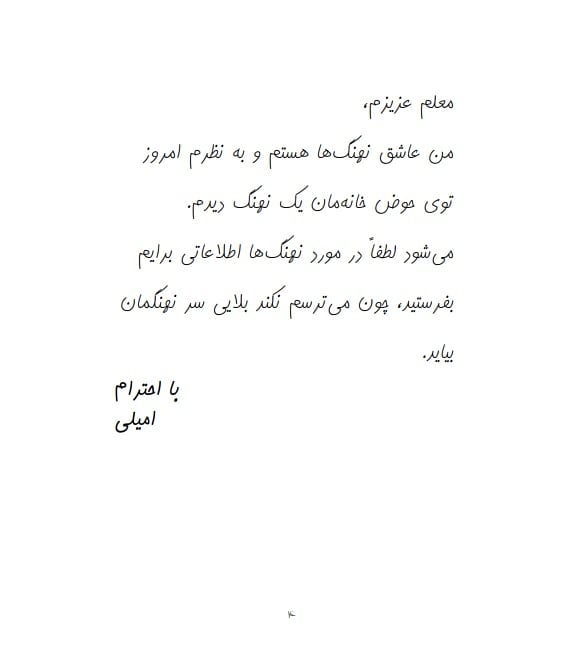 معلم عزیزم،
من عاشق نهنگ‌ها هستم و به نظرم امروز
توی حوض خانه‌مان یک نهنگ دیدم.
می‌شود لطفاً در مورد نهنگ‌ها اطلاعاتی برایم
بفرستید، چون می‌ترسم نکند بلایی سر نهنگمان
بیاید.
با احترام
امیلی
۴